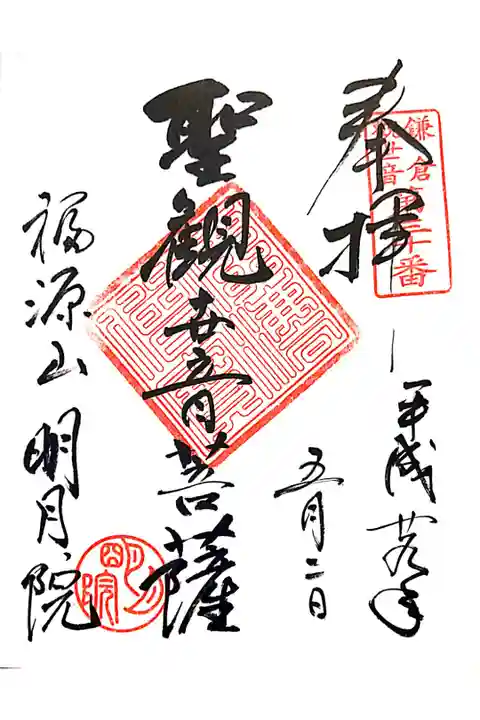 奉拝
鎌倉第三十番
観世音
平成廿九年
五月二日
聖観世音菩薩
福源山 明月院